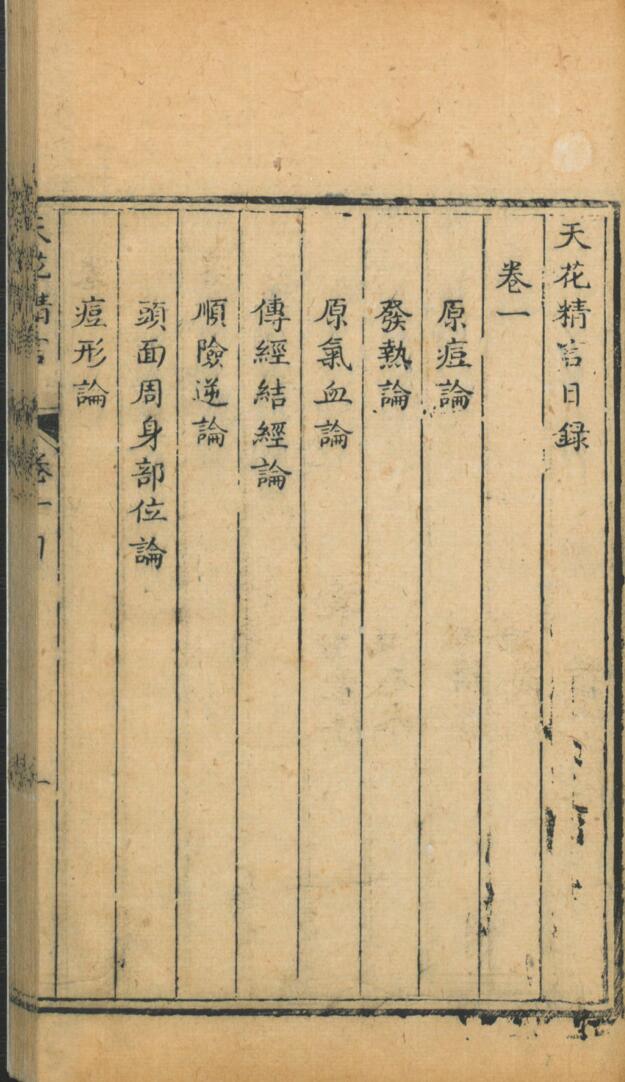 天花精言目録
卷一
原痘論
發熱論
原氣血論
傳經結經論
順險逆論
頭面周身部位論
痘形論
天花精言 卷一 目 一